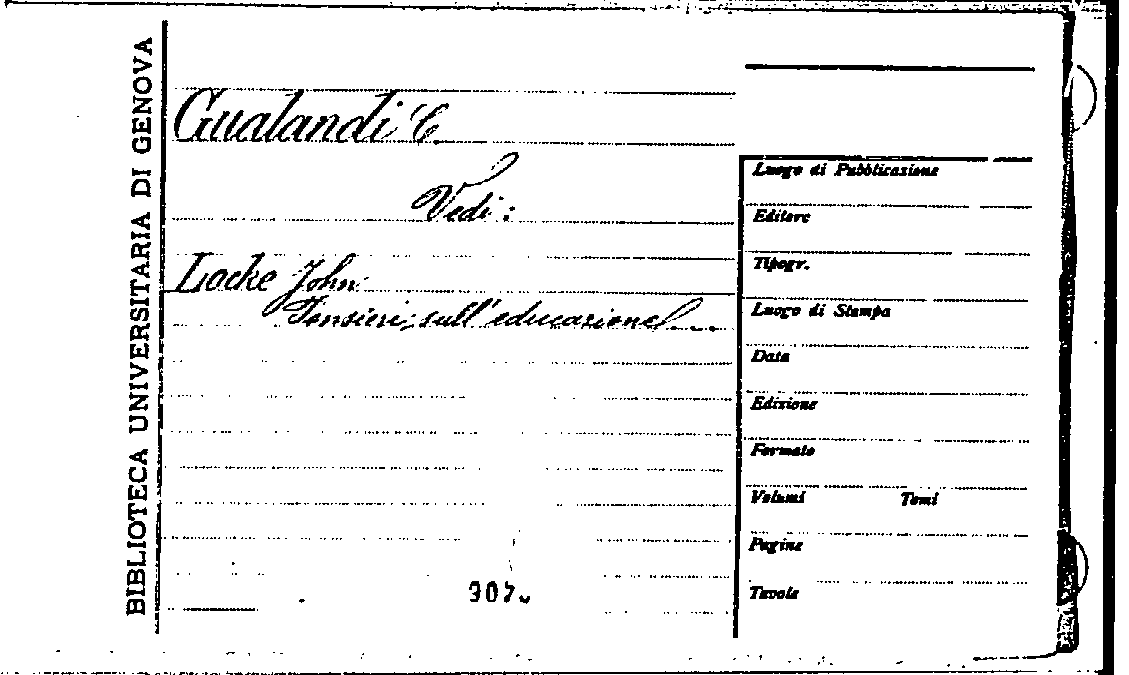 BIBLIOTECA UNIVERSITARIA DI GENOVA
Gualandi C.
Vedi:
Locke John
Pensieri sull'educazione...
Luogo di Pubblicazione
Editore
Tipogr.
Luogo di Stampa
Data
Edizione
Formato
Volumi Tomi
Pagine
Tavole